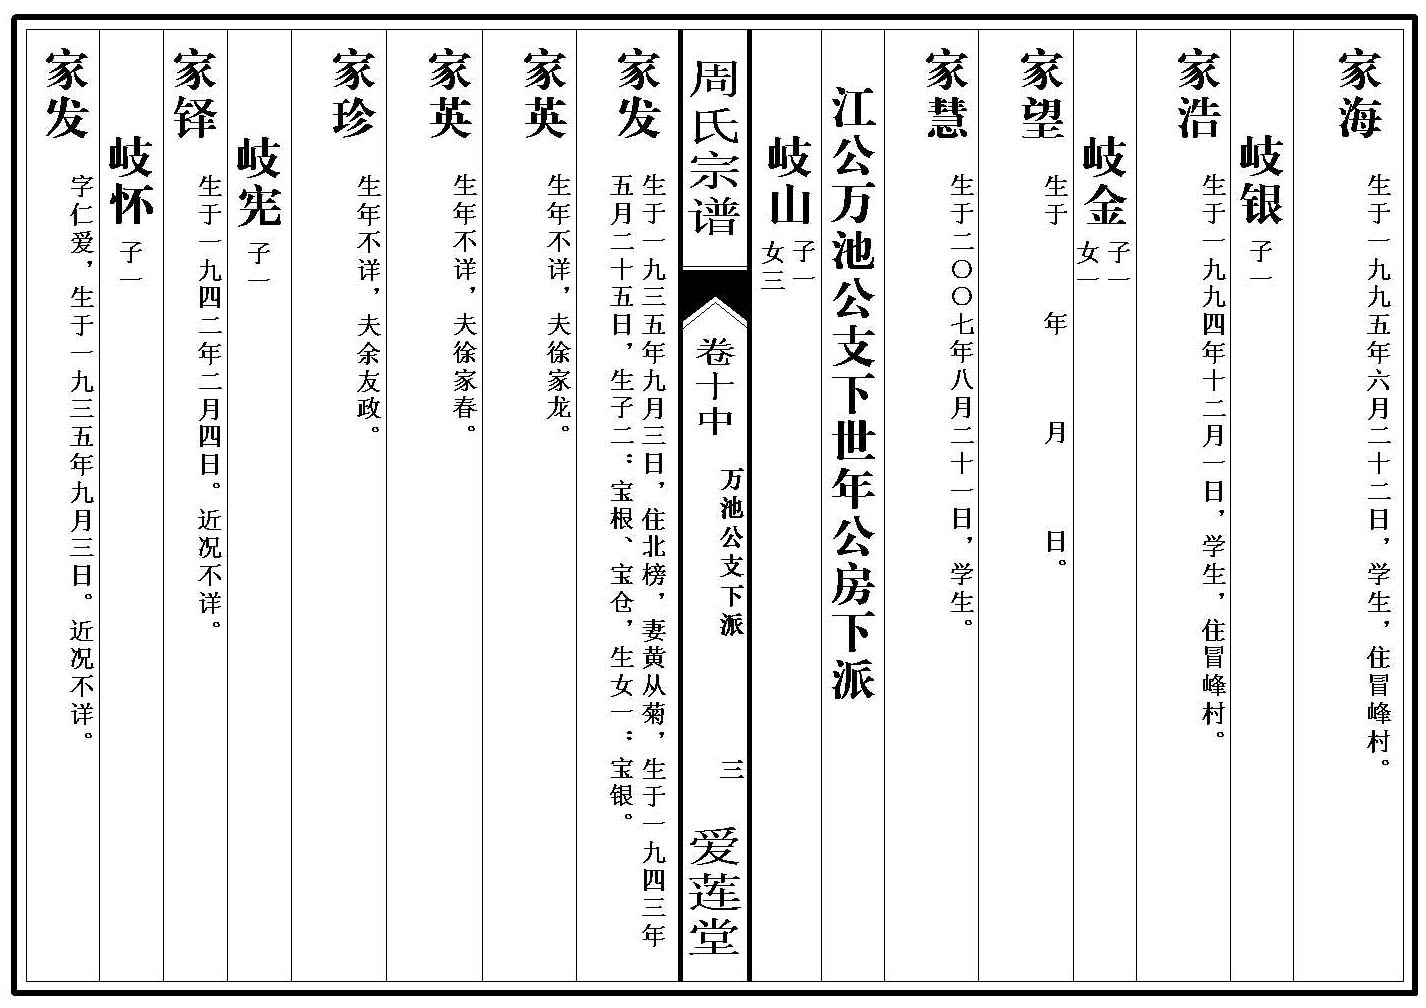 家海
生于一九九五年六月二十二日，学生，住冒峰村。
岐银
子一
家浩
生于一九九四年十二月一日，学生，住冒峰村。
岐金
子一
女一
家望
生于 年 月 日。
家慧
生于二〇〇七年八月二十一日，学生。
江公万池公支下世年公房下派
岐山
子一
女三
周氏宗谱
卷十中
万池公支下派
三
爱莲堂
家发
生于一九三五年九月三日，住北榜，妻黄从菊，生于一九四三年
五月二十五日，生子二：宝根、宝仓，生女一：宝银。
家英
生年不详，夫徐家龙。
家英
生年不详，夫徐家春。
家珍
生年不详，夫余友政。
岐宪
子一
家铎
生于一九四二年二月四日。近况不详。
岐怀
子一
家发
字仁爱，生于一九三五年九月三日。近况不详。